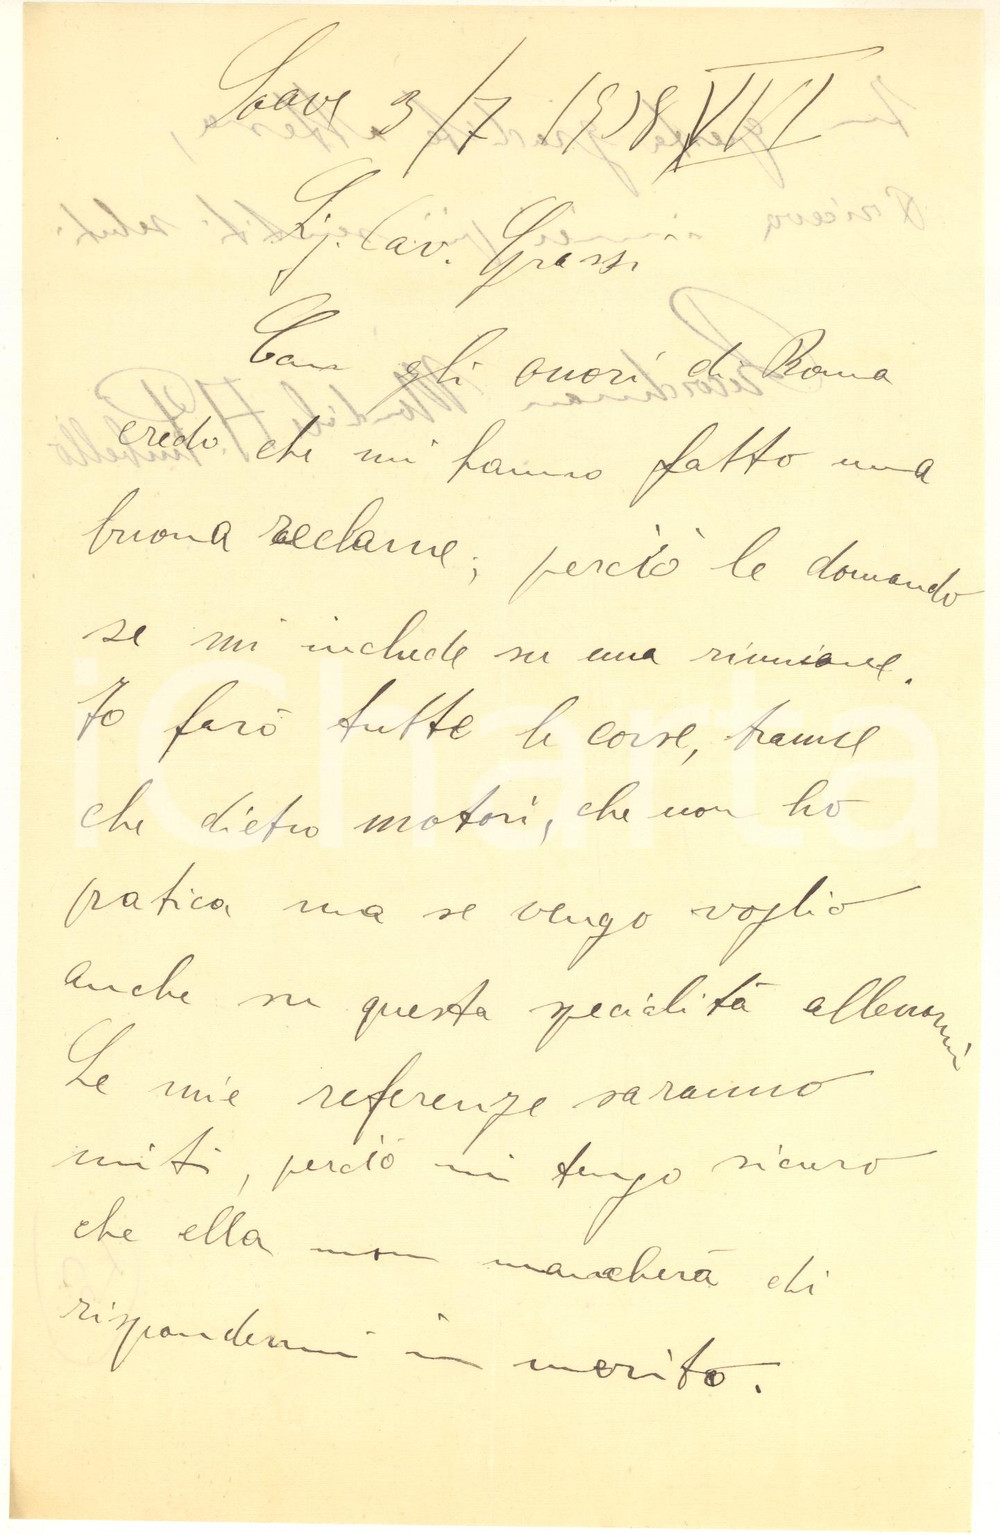 Soave 3/7 1928 VI
Sig. Cav. Grassi
Con gli onori di Roma
credo che mi hanno fatto una
buona reclame; perciò le domando
se mi include su una riunione.
Io farò tutte le corse, tranne
che dietro motori, che non ho
pratica ma se vengo voglio
anche su questa specialità allenarmi
Le mie referenze saranno
miti, perciò mi tengo sicuro
che ella non mancherà di
rispondermi in merito.
iCharta